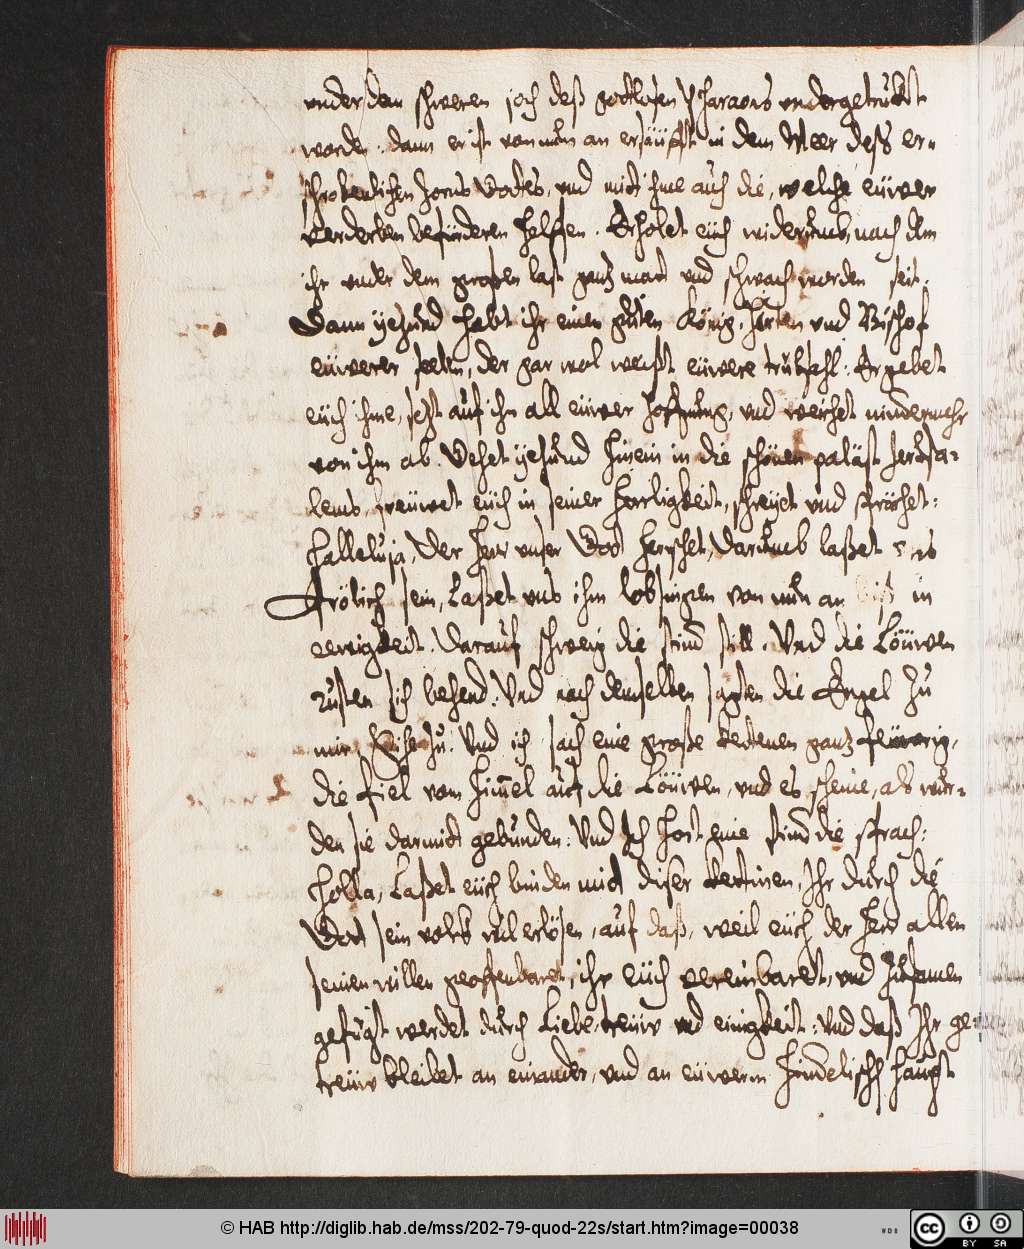 vnder dem schweren joch deß gottlosen Pharaons vndergetrükt
worden. dann er ist von nun an ersäüfft in dem Meer deß er=
schrökenlichen zorns Gottes, vnd mit ihme auch die, welche eüwer
verderben befürderen helffen. Erholet eüch widerumb, nach dem
ihr vnder dem großen last gantz matt vnd schwach worden seit.
Dann yetzund habt ihr einen guten König, Hirten vnd Bischof
eüwerer seelen, der gar wol weißt eüwere trübsahl. Ergebet
eüch ihme, setzt auf ihn all eüwer hoffnung, vnd weichet nimmermehr
von ihm ab. Gehet yetzund hinein in die schönen paläst Jerusa=
lems, freüwet eüch in seiner herrligkeit, schreyet vnd sprächet:
Halleluja, der Herr vnser Gott herschet, Darumb laßet vns
frölich sein, Laßet vns ihm lobsingen von nun an biß in
eewigkeit. Darauf schweig die stimm still. Vnd die Löüwen
rusten sich behend. Vnd nach demselben sagten die Engel zu
mir, Sihe zu. Vnd ich sach eine große kettenen gantz feüwrig,
die fiel vom Himmel auf die Löüwen, vnd es scheine, als wur=
den sie darmit gebunden: Vnd ich hort eine stimm die sprach:
Holla, Laßet eüch binden mit diser kettinen, Ihr durch die
Gott sein volk wil erlösen, auf daß, weil eüch der Herr allen
seinen willen geoffenbaret, ihr eüch vereinbaret, vnd zusamen
gefügt werdet durch Liebe, treüw vnd einigkeit: Vnd daß Ihr ge=
treüw bleibet an einander, vnd an eüwerm Himmelischen haupt
© HAB http://diglib.hab.de/mss/202-79-quod-22s/start.htm?image=00038
WDB
cc
BY SA